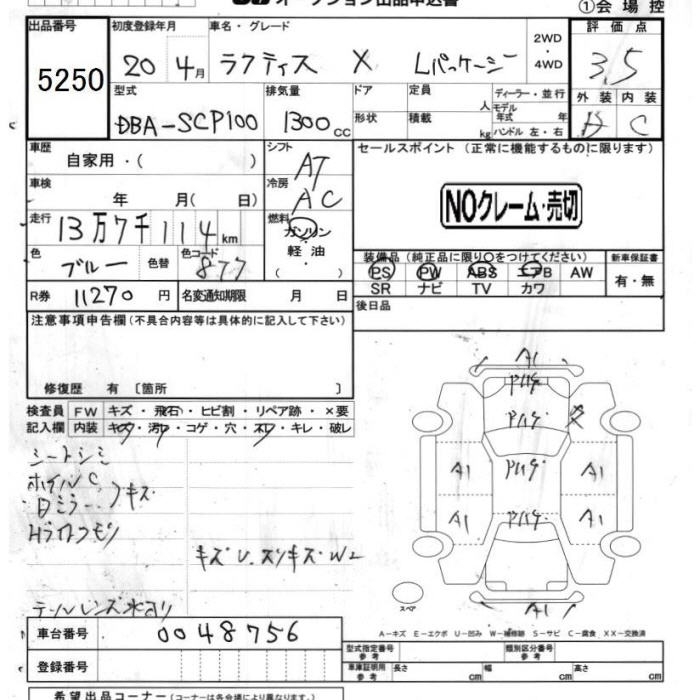 オークション出品申込書
①会場控
出品番号
5250
初度登録年月
20 4月
車名・グレード
ラクティス X Lパッケージ
2WD
・
4WD
評価点
3.5
型式
DBA-SCP100
排気量
1300cc
ドア
形状
定員 人
積載 kg
ディーラー・並行
モデル年式 年
ハンドル 左・右
外装 内装
C
車歴
自家用・( )
シフト
AT
車検
年 月( 日)
冷房
AC
走行
13万7千114km
燃料
ガソリン
軽油
色
ブルー
色替
色コード
877
R券 11270円
名変通知期限 月 日
セールスポイント (正常に機能するものに限ります)
NOクレーム・売切
装備品(純正品に限り○をつけてください)
新車保証書
PS PW ABS エアB AW
SR ナビ TV カワ
有・無
後日品
注意事項申告欄(不具合内容等は具体的に記入して下さい)
修復歴 有 〔箇所 〕
検査員 FW キズ・飛石・ヒビ割・リペア跡・×要
記入欄 内装 キズ・汚レ・コゲ・穴・スレ・キレ・破レ
シートシミ
ホイルC
キズ
Hライトクモリ
キズU.スリキズ.W2
テールレンズ水入り
A1
A1 A1
A1 A1
A1
スペア
A-キズ E-エクボ U-凹み W-補修跡 S-サビ C-腐食 XX-交換済
車台番号 0048756
登録番号
型式指定番号
参考
類別区分番号
参考
車庫証明用
参考
長さ cm 幅 cm 高さ cm
希望出品コーナー(コーナーは各会場により異なります)